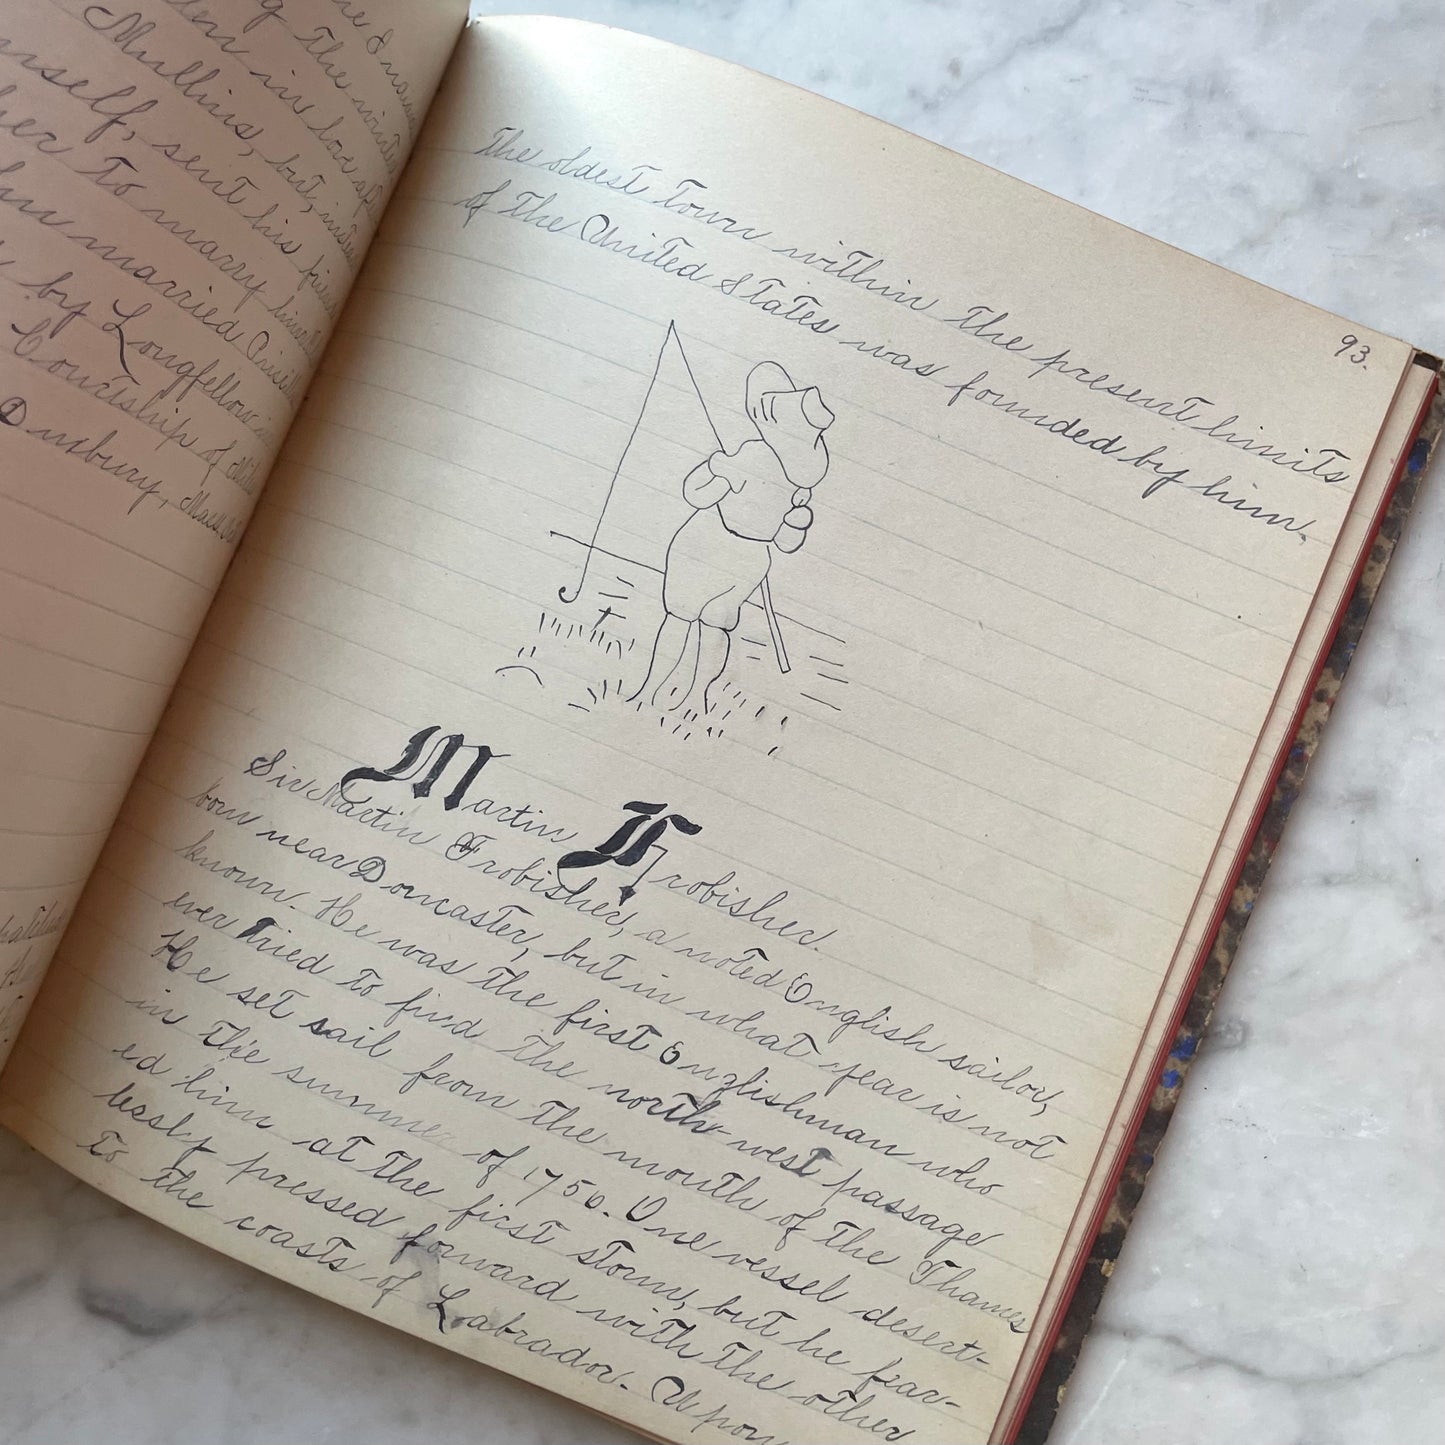 the
Mullins, but, instead
himself, sent his friend
her to marry him
married Priscilla
by Longfellow in
Courtship of Miles
Duxbury, Mass
93.
The oldest town within the present limits
of the United States was founded by him.
Martin Frobisher.
Sir Martin Frobisher, a noted English sailor,
born near Doncaster, but in what year is not
known. He was the first Englishman who
ever tried to find the north-west passage
He set sail from the mouth of the Thames
in the summer of 1756. One vessel desert-
ed him at the first storm, but he fear-
lessly pressed forward with the other
to the coasts of Labrador. Upon